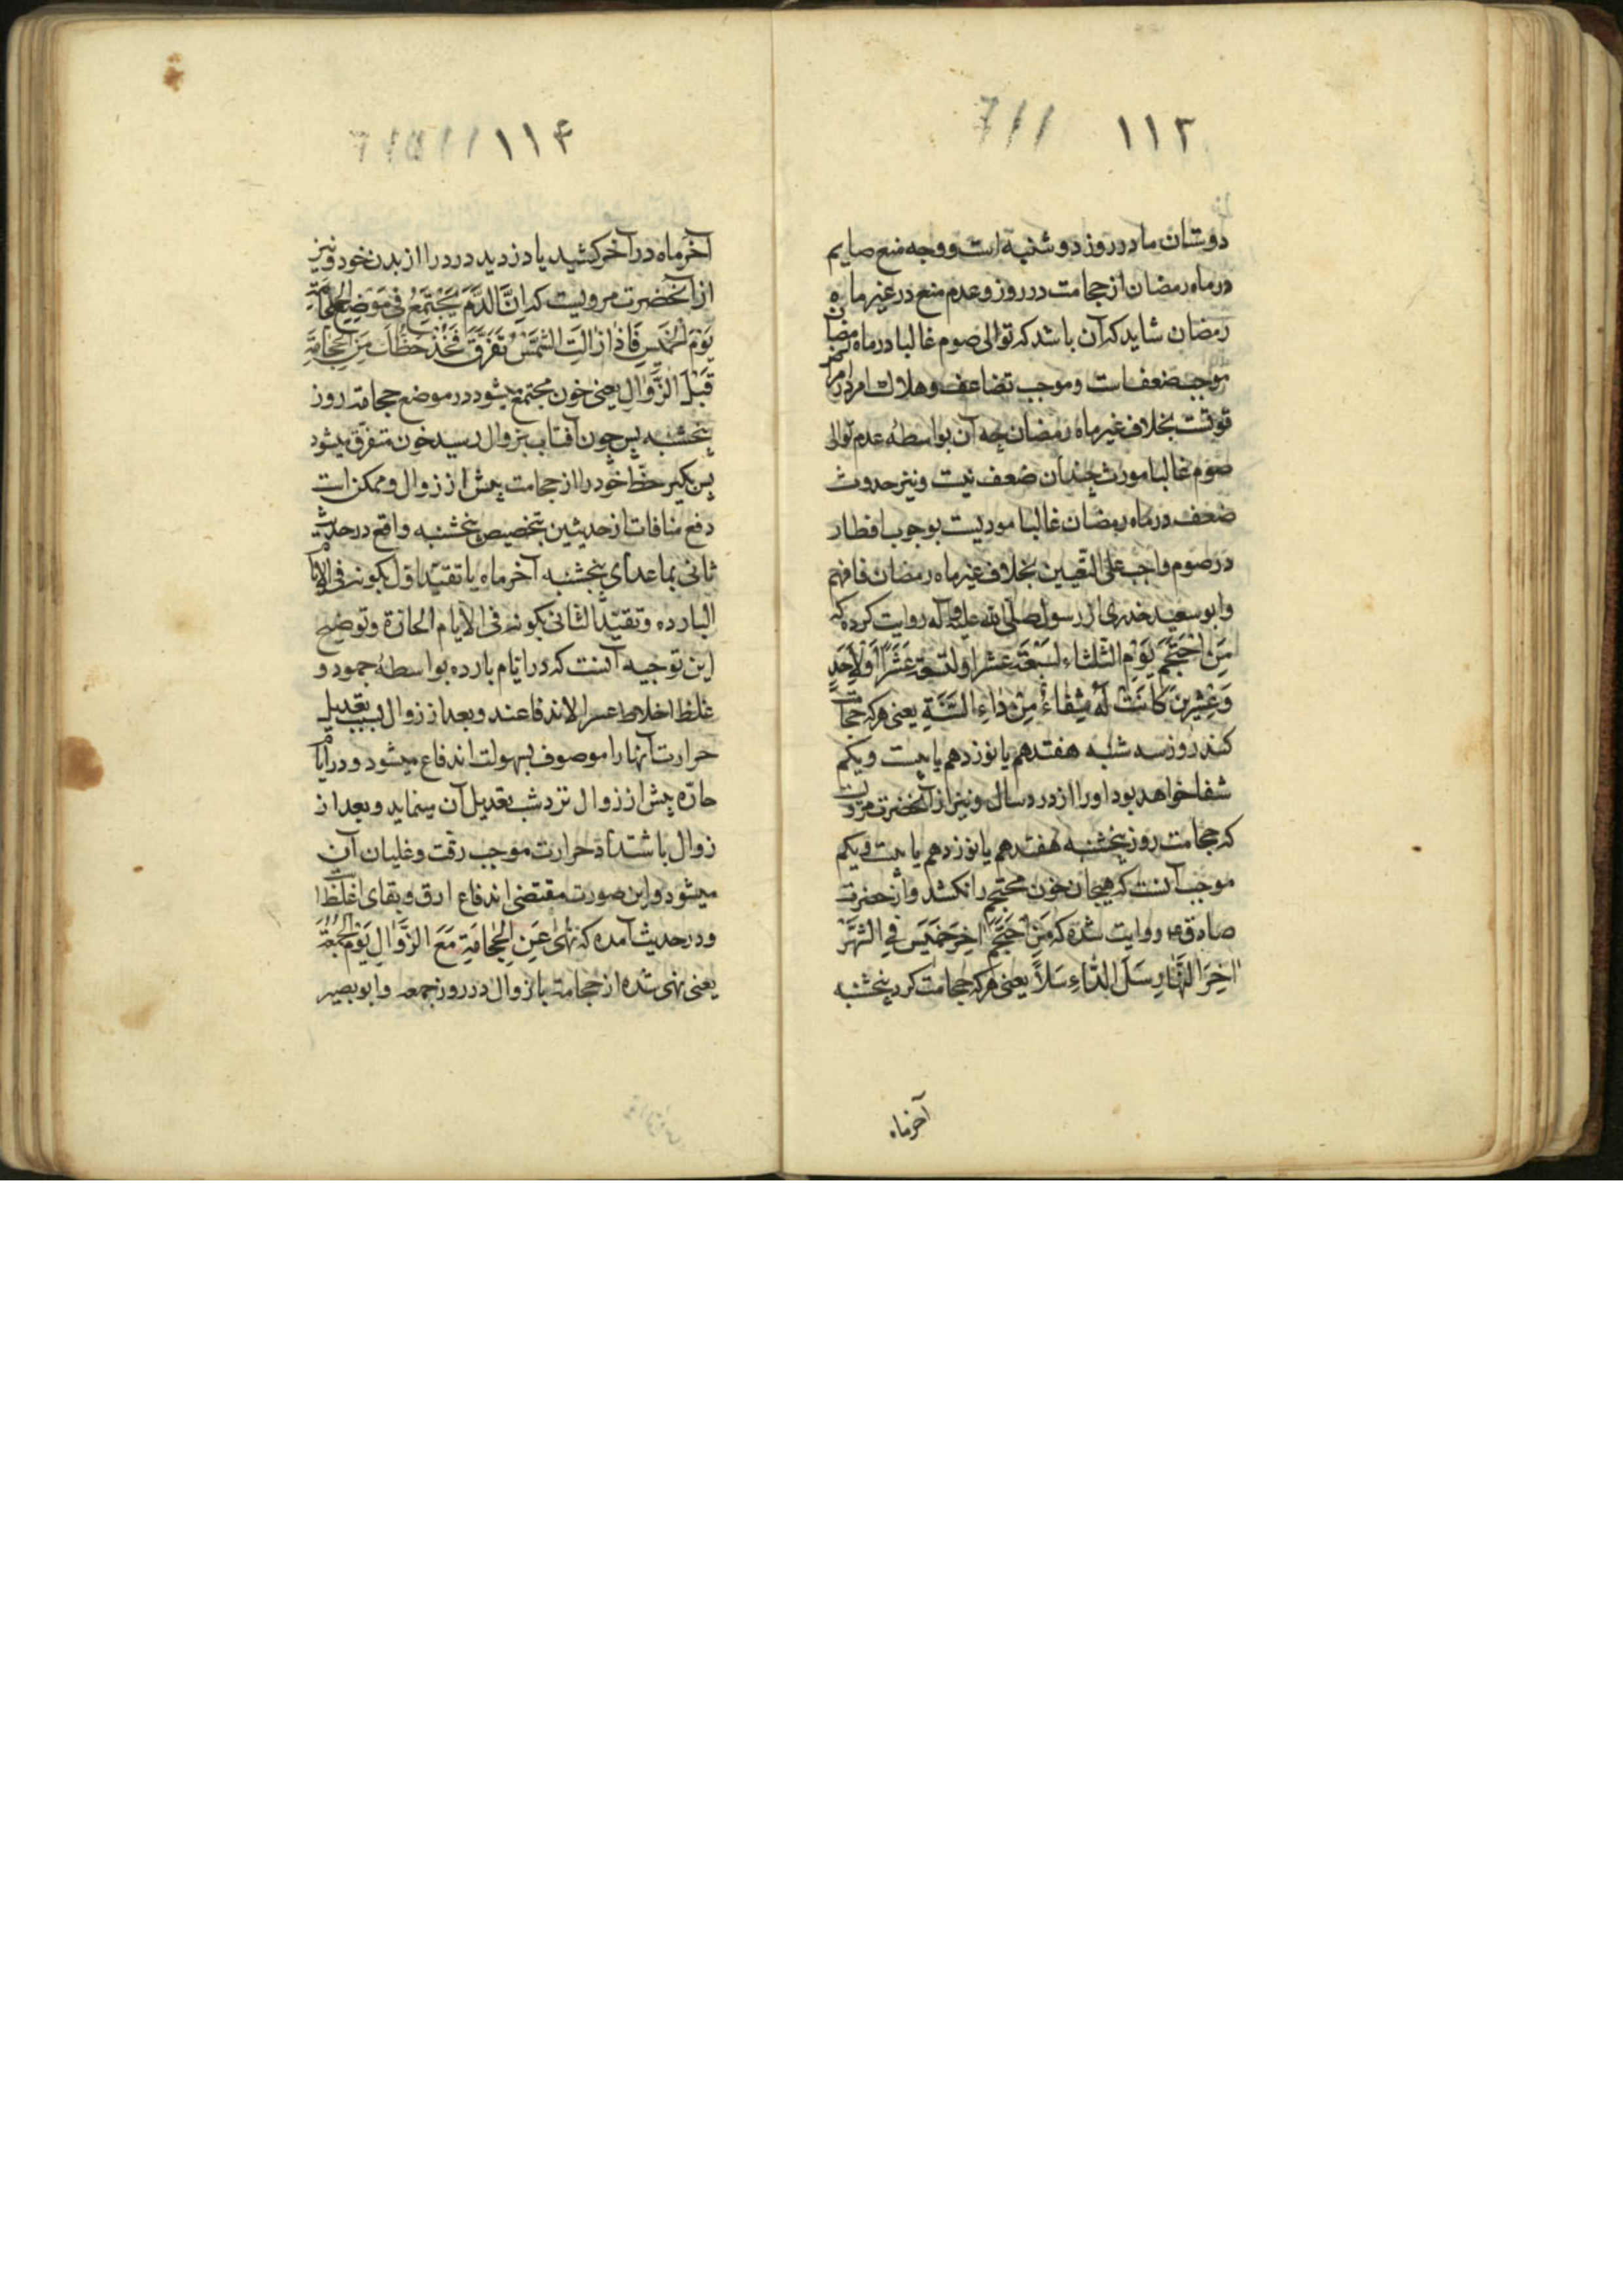 ۱۱۳
دوستان ما در روز دوشنبه است و وجه منع صایم
در ماه رمضان از حجامت در روز و عدم منع در غیر ماه
رمضان شاید که آن باشد که توالی صوم غالبا در ماه رمضان
موجب ضعفست و موجب تضاعف و هلاک
قوتست بخلاف غیر ماه رمضان چه آن بواسطهٔ عدم توالی
صوم غالبا مورث چندان ضعف نیست و نیز حدوث
ضعف در ماه رمضان غالبا مودیست بوجوب افطار
در صوم واجب علی التعیین بخلاف غیر ماه رمضان فافهم
و ابو سعید خدری از رسول صلی الله علیه و آله روایت کرده که
مَنِ احْتَجَمَ یَوْمَ الثَّلثاءِ لِسَبْعَةَ عَشَرَ اَوْ لِتِسْعَةَ عَشَرَ اَوْ لِاَحَدٍ
وَ عِشْرینَ کانَتْ لَهُ شِفاءً مِنْ داءِ السَّنَةِ یعنی هر که حجامت
کند روز سه شنبه هفتدهم یا نوزدهم یا بیست و یکم
شفا خواهد بود او را از درد سال و نیز از آنحضرت مرویست
که حجامت روز پنجشنبه هفتدهم یا نوزدهم یا بیست و یکم
موجب آنست که هیجان خون محتجم را نکشد و از حضرت
صادق ع روایت شده که مَنِ احْتَجَمَ اخِرَ خَمیسٍ فِی الشَّهْرِ
اخِرَ النَّهارِ سَلَّ الدّاءَ سَلّاً یعنی هر که حجامت کرد پنجشنبه
آخر ماه
۱۱۴
آخر ماه در آخر کشید یا دزدید درد را از بدن خود و نیز
از آنحضرت مرویست که اِنَّ الدَّمَ یَجْتَمِعُ فی مَوْضِعِ الْحِجامَةِ
یَوْمَ الْخَمیسِ فَاِذا زالَتِ الشَّمْسُ تَفَرَّقَ فَخُذْ حَظَّکَ مِنَ الْحِجامَةِ
قَبْلَ الزَّوالِ یعنی خون مجتمع میشود در موضع حجامة روز
پنجشنبه پس چون آفتاب بزوال رسید خون متفرق میشود
پس بگیر حظّ خود را از حجامت پیش از زوال و ممکن است
دفع منافات از حدیثین بتخصیص پنجشنبه واقع در حدیث
ثانی بما عدای پنجشنبه آخر ماه یا تقیید اول بکونه فی الایام
البارده و تقیید الثانی بکونه فی الایام الحارّة و توضیح
این توجیه آنست که در ایام بارده بواسطهٔ جمود و
غلظ اخلاط عسر الاندفاعند و بعد از زوال بسبب تعدیل
حرارت آنها را موصوف بسهولت اندفاع میشود و در ایام
حارّه پیش از زوال برد شب تعدیل آن مینماید و بعد از
زوال باشتداد حرارت موجب رقت و غلیان آن
میشود و این صورت مقتضی اندفاع ارق و بقای اغلظ
و در حدیث آمده که نُهِیَ عَنِ الْحِجامَةِ مَعَ الزَّوالِ یَوْمَ الْجُمُعَةِ
یعنی نهی شده از حجامة با زوال در روز جمعه و ابو بصیر